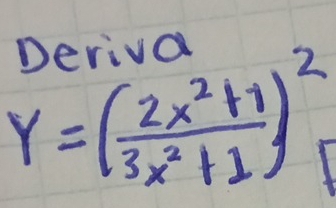 Deriva
Y = (\frac{2x^2+1}{3x^2+1})^2